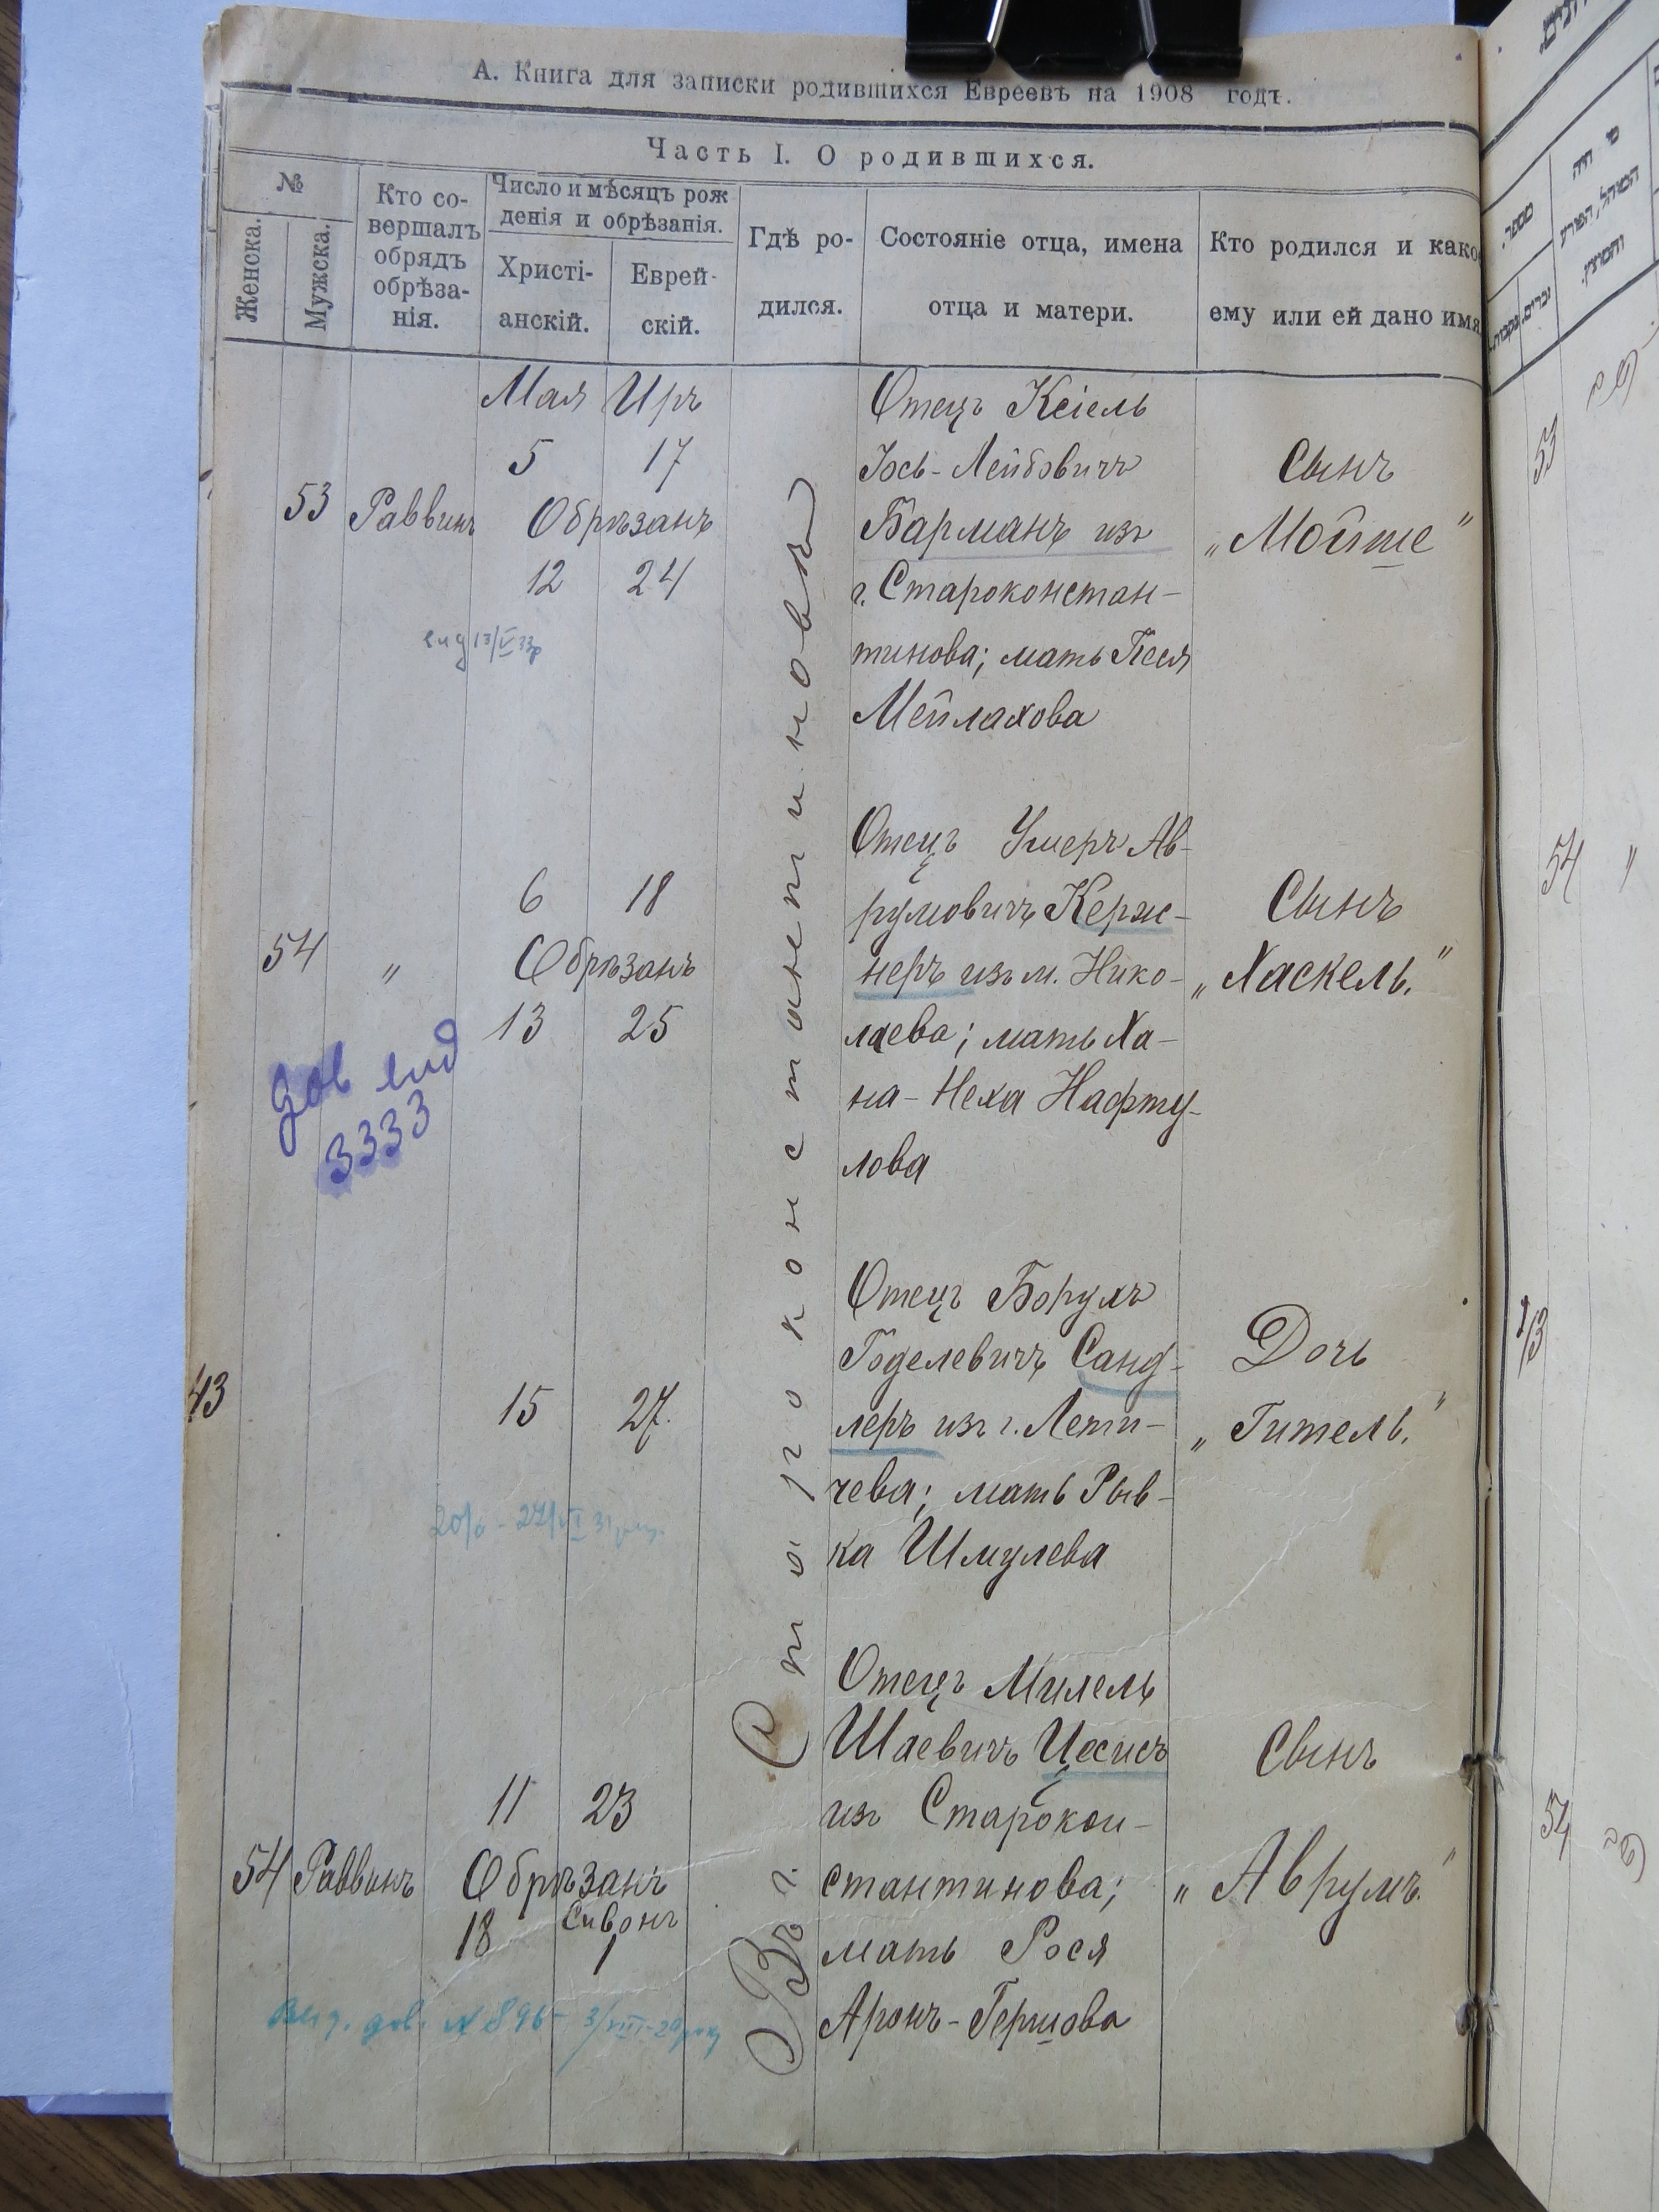 А. Книга для записки родившихся Евреевъ на 1908 годъ.
Часть I. О родившихся.
№
Женска.
Мужска.
Кто со-
вершалъ
обрядъ
обрѣза-
нія.
Число и мѣсяцъ рож
денія и обрѣзанія.
Христі-
анскій.
Еврей-
скій.
Гдѣ ро-
дился.
Состояніе отца, имена
отца и матери.
Кто родился и како
ему или ей дано имя
Мая Иръ
5 17
53 Раввинъ Обрѣзанъ
12 24
Отецъ Ксіель
Іось-Лейбовичъ
Барманъ изъ
г. Староконстан-
тинова; мать Песя
Мейлахова
Сынъ
„Мойше"
6 18
54 „ Обрѣзанъ
13 25
дов
3333
Отецъ Ушеръ Ав-
румовичъ Керж-
неръ изъ м. Нико-
лаева; мать Ха-
на-Неха Нафту-
лова
Сынъ
„Хаскель."
43 15 27.
Отецъ Борухъ
Годелевичъ Санд-
леръ изъ г. Лети-
чева; мать Рыв-
ка Шмулева
Дочь
„Гитель."
11 23
54 Раввинъ Обрѣзанъ
Сивонъ
18 1
Отецъ Михель
Шаевичъ
изъ Старокон-
стантинова;
мать Рося
Аронъ-Гершова
Сынъ
„Аврумъ."
Въ г. Староконстантиновѣ
53
54 "
54